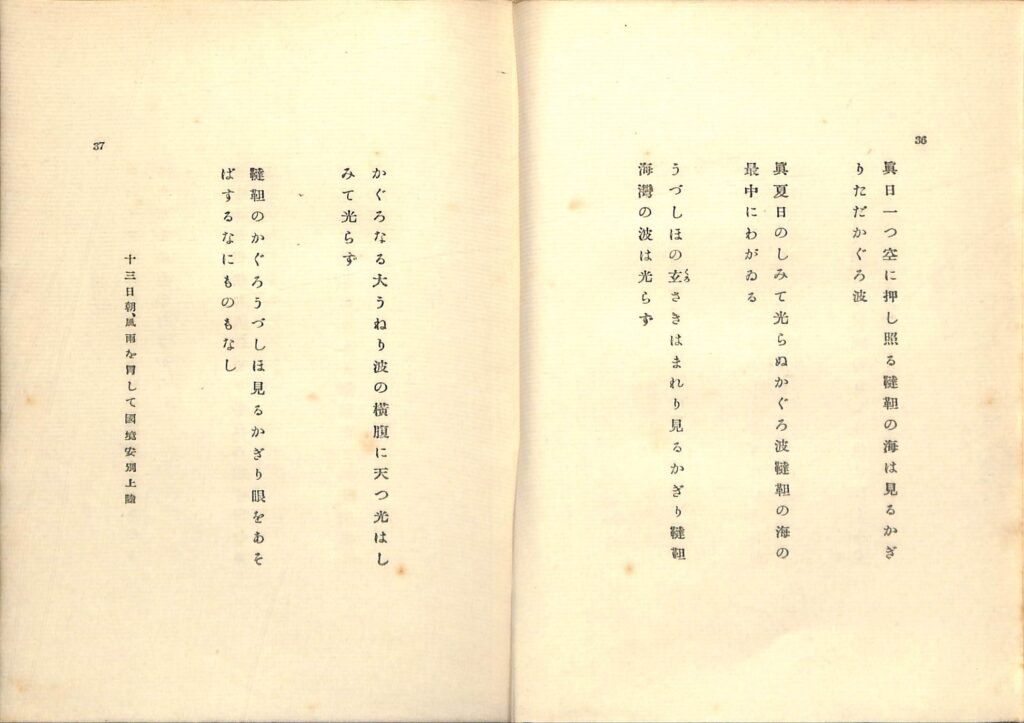 36
眞日一つ空に押し照る韃靼の海は見るかぎ
りただかぐろ波
眞夏日のしみて光らぬかぐろ波韃靼の海の
最中にわがゐる
うづしほの玄さきはまれり見るかぎり韃靼
くろ
海灣の波は光らず
37
かぐろなる大うねり波の橫腹に天つ光はし
みて光らず
韃靼のかぐろうづしほ見るかぎり眼をあそ
ばするなにものもなし
十三日朝、風雨を冐して國境安別上陸